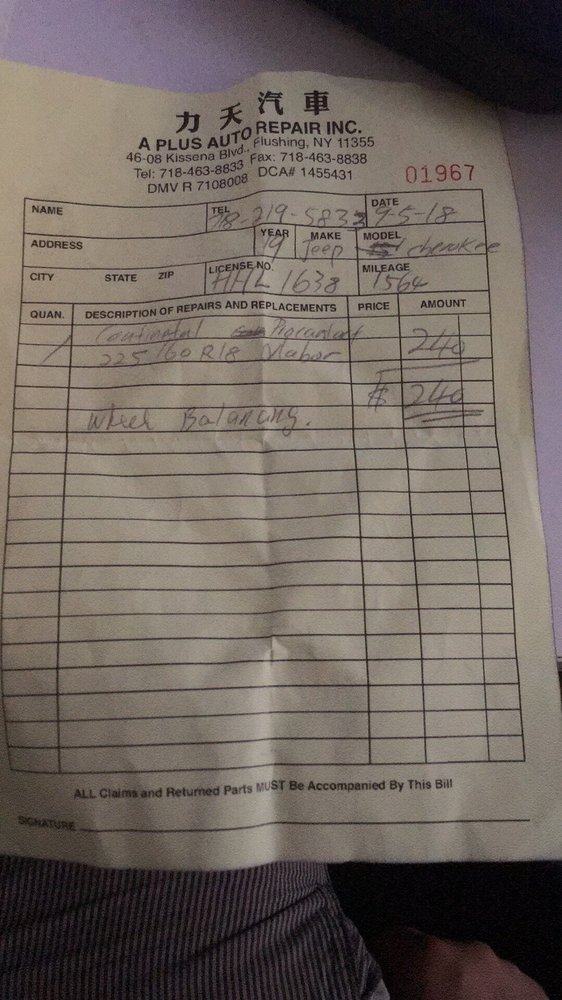 力天汽車
A PLUS AUTO REPAIR INC.
46-08 Kissena Blvd., Flushing, NY 11355
Tel: 718-463-8833 Fax: 718-463-8838
DMV R 7108008 DCA# 1455431
01967
NAME TEL 718-219-5833 DATE 9-5-18
ADDRESS YEAR 19 MAKE Jeep MODEL cherokee
CITY STATE ZIP LICENSE NO. HHL 1638 MILEAGE 1564
QUAN. DESCRIPTION OF REPAIRS AND REPLACEMENTS PRICE AMOUNT
1 Continetal Procontact
225/60 R18 /labor 240
$ 240
Wheel Balancing.
ALL Claims and Returned Parts MUST Be Accompanied By This Bill
SIGNATURE